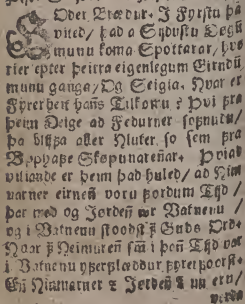 Oder Brædur. I Fyrstu þa
vited / þad a Sydustu Døgū
munu koma Spottarar / hvo
rier epter þeirra eigenlegum Girndū
munu ganga / Og Seigia. Hvar er
Fyrerheit hans Tilkomu? Þvi fra
þeim Deige ad Fedurner sofnudu /
þa blijfa aller Hluter so sem fra
Vpphafe Skøpunareñar. Þviad
viliande er þeim þad huled / ad Him
narner eirneñ voru fordum Tijd /
þar med og Jørdeñ vr Vatnenu /
og i Vatnenu stoodst Guds Ord.
Naar Heimureñ sm i þañ Tijd var
i Vatnenu yferflæddur fyrerfoorst.
Eñ Himnarner Jørdeñ nu ern /
verda